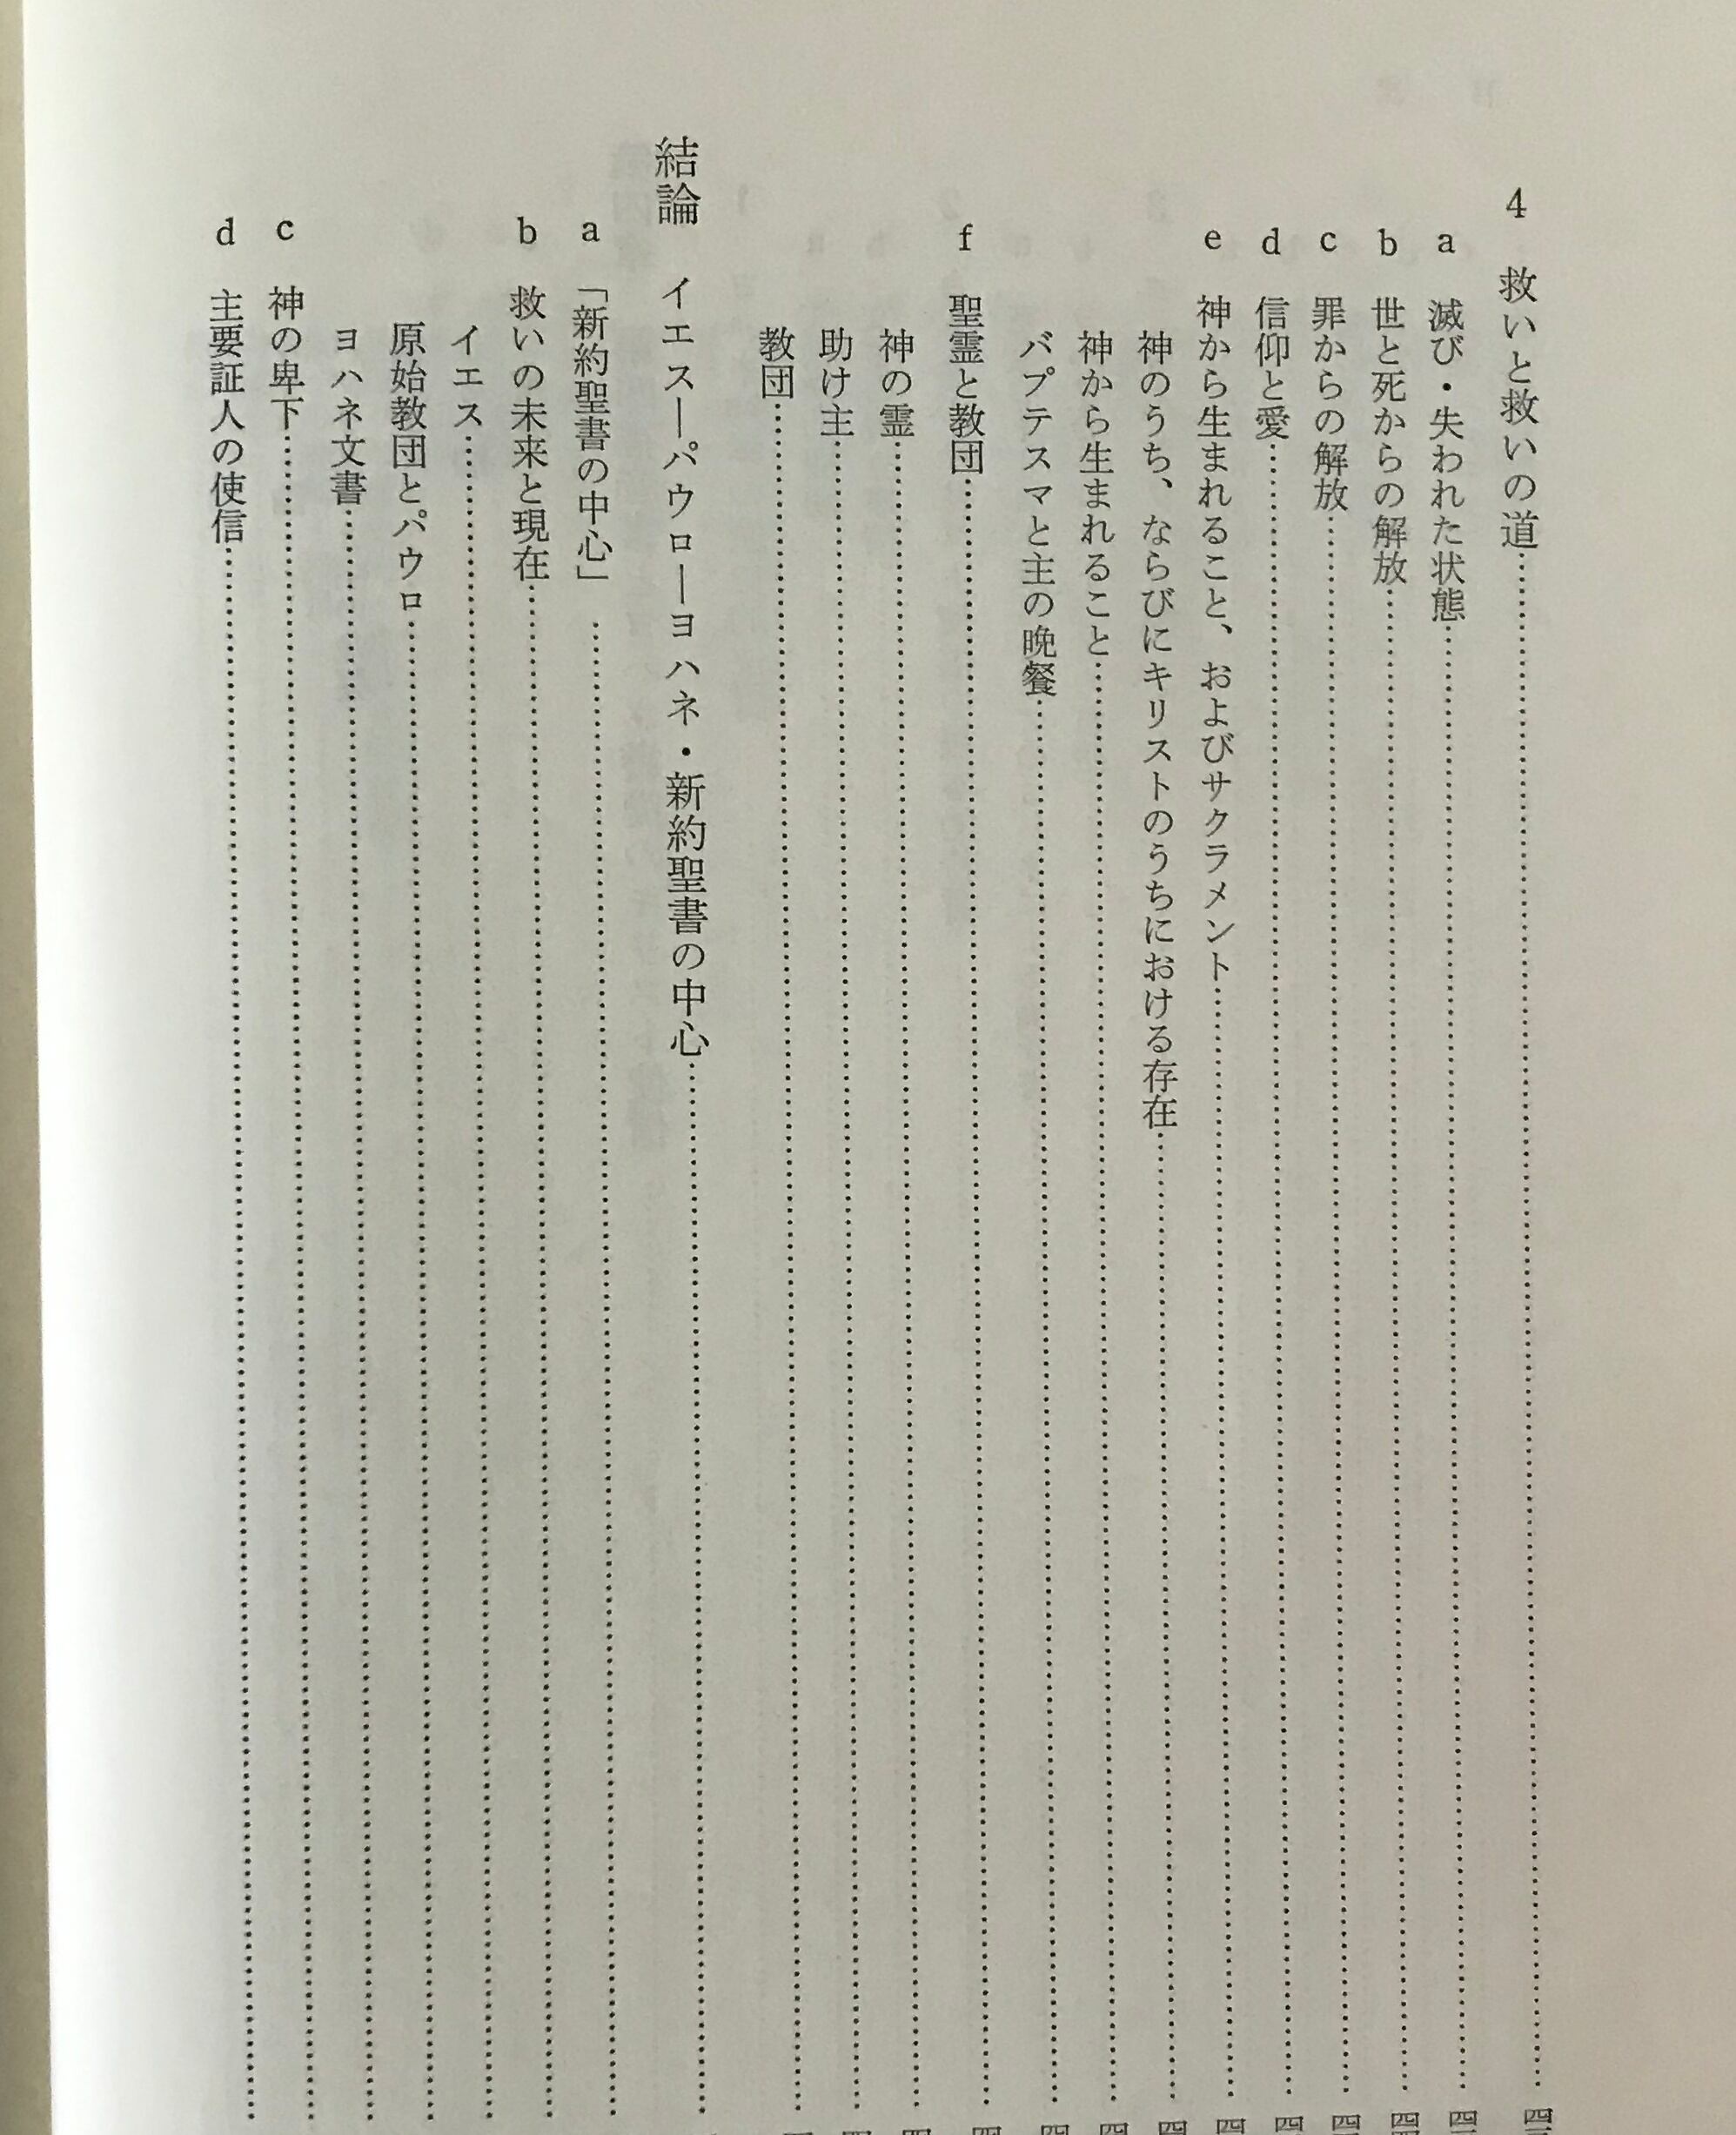 4 救いと救いの道
a 滅び・失われた状態
b 世と死からの解放
c 罪からの解放
d 信仰と愛
e 神から生まれること、およびサクラメント
神のうち、ならびにキリストのうちにおける存在
神から生まれること
バプテスマと主の晩餐
f 聖霊と教団
神の霊
助け主
教団
結論 イエス―パウロ―ヨハネ・新約聖書の中心
a 「新約聖書の中心」
b 救いの未来と現在
イエス
原始教団とパウロ
ヨハネ文書
c 神の卑下
d 主要証人の使信